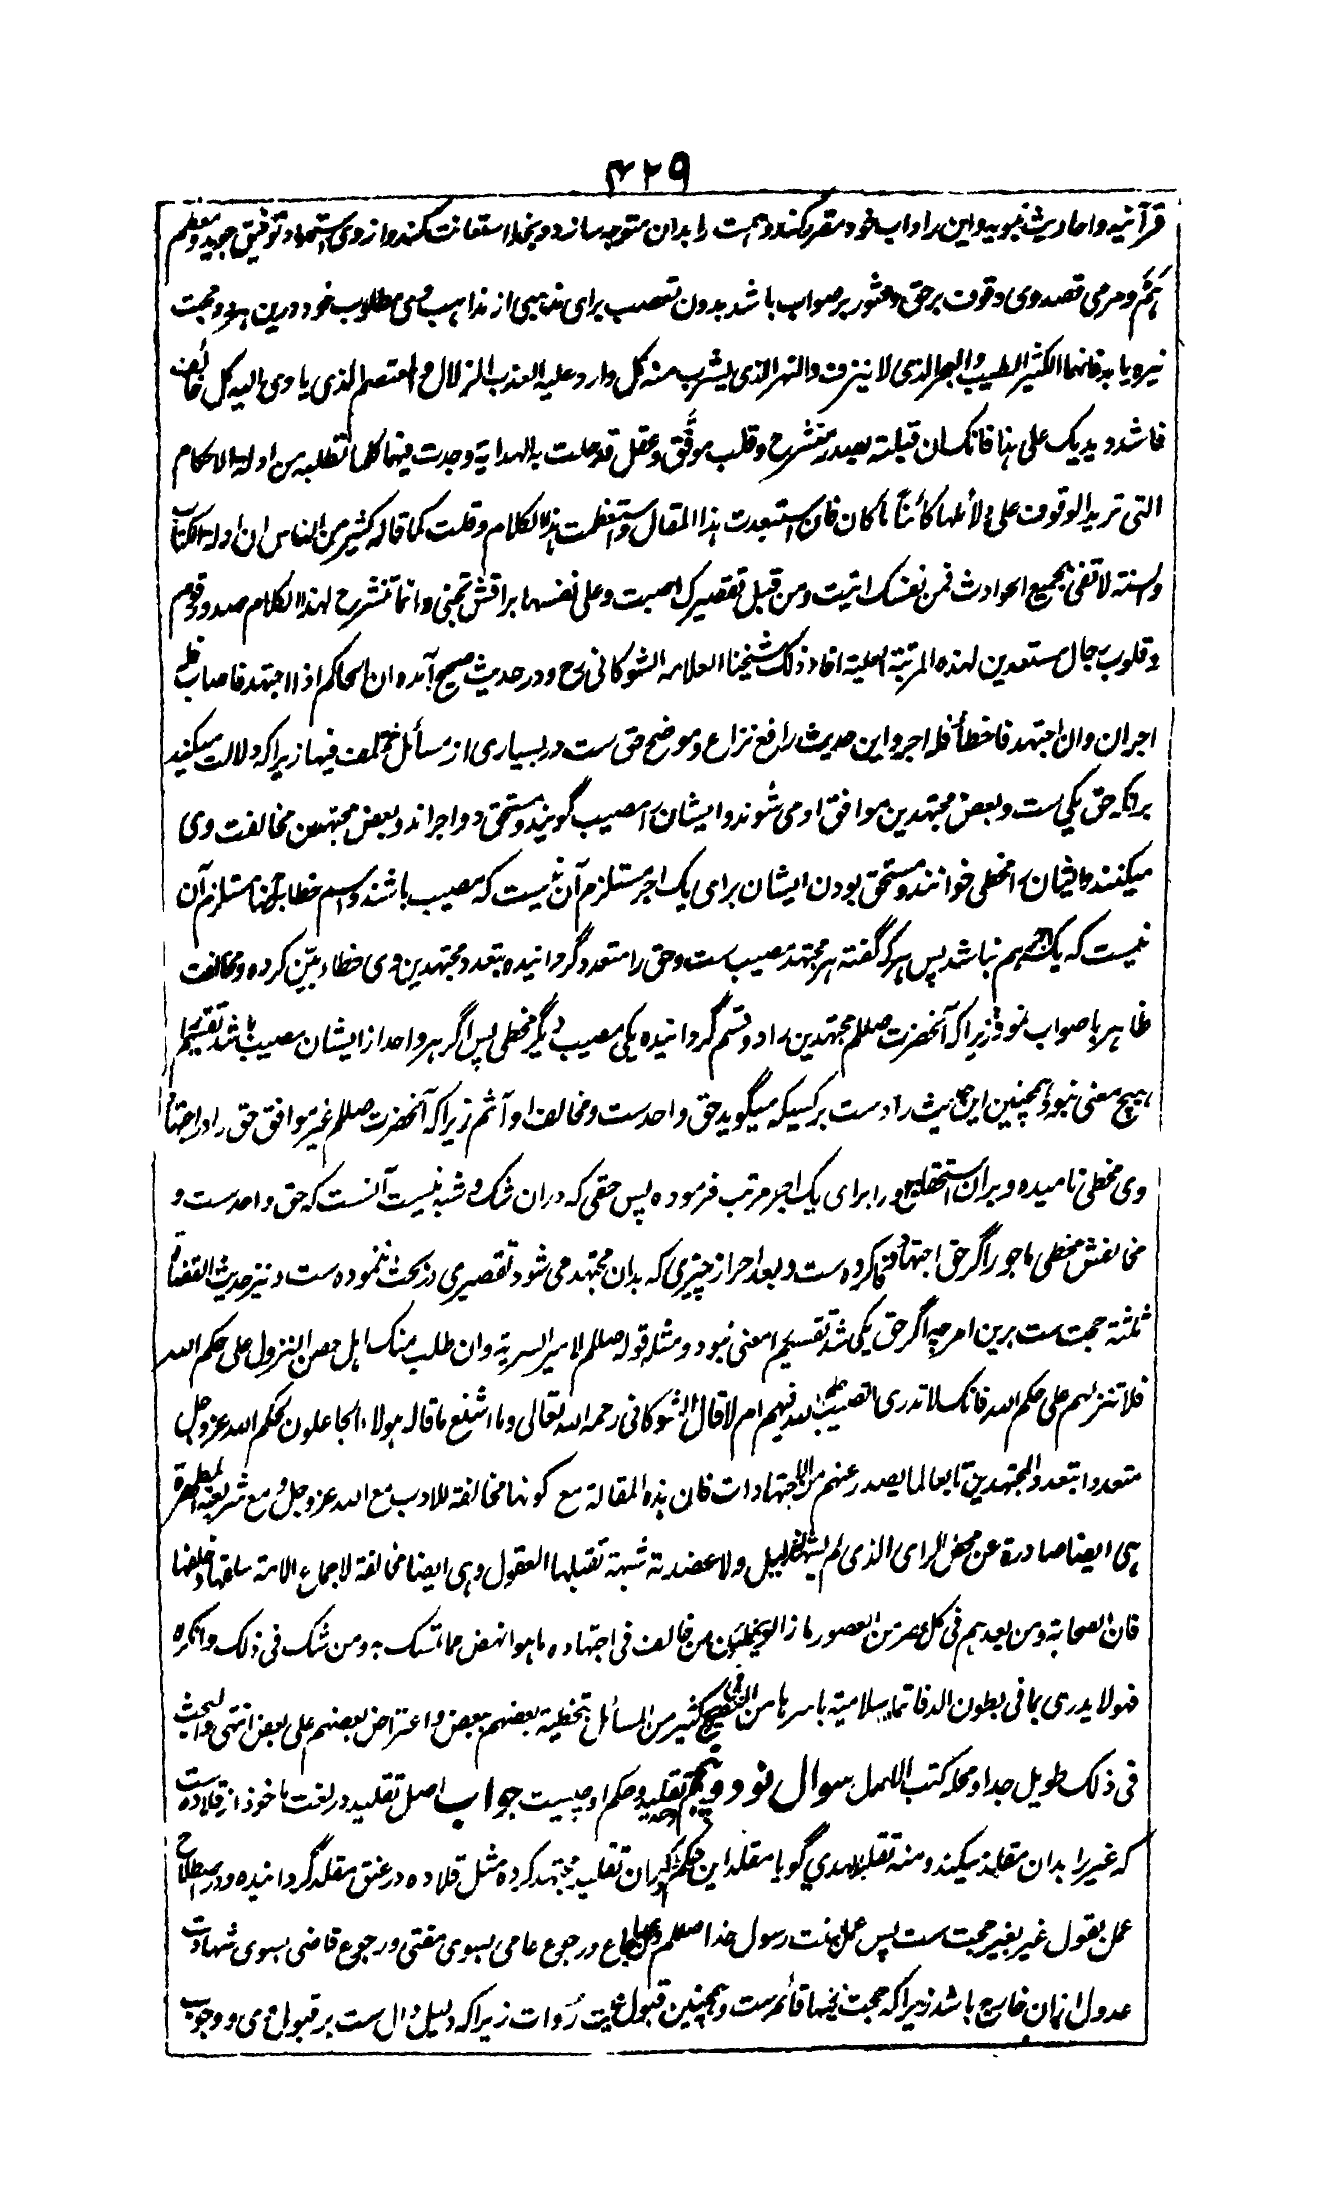 ۴۲۹
قرآنیه و احادیث نبویه و این را داب خود مقرر کند و همت را بدان متوجه سازد و بخدا استعانت کند و از وی استمداد توفیق جوید و معظم
هم و مرمی قصد وی وقوف بر حق و عثور بر صواب باشد بدون تعصب برای مذهبی از مذاهب وی مطلوب خود درین هر دو حجت
نیره یابد فانهما الکثیر الطیب والبحر الذی لا ینزف والنهر الذی یشرب منه کل وارد علیه العذب الزلال والمعتصم الذی یاوی الیه کل خائف
فاشدد یدیک علی هذا فانک ان قبلته بصدر منشرح وقلب موفّق وعقل قد حلت به الهدایة وجدت فیهما کلما تطلبه من ادلة الاحکام
التی ترید الوقوف علی دلائلها کائنًا ما کان فان استبعدت هذا المقال واستعظمت هذا الکلام وقلت کما قاله کثیر من الناس ان ادلة الکتاب
والسنة لا تفی بجمیع الحوادث فمن نفسک اتیت ومن قبل تقصیرک اصبت وعلی نفسها براقش تجنی وانما تنشرح لهذا الکلام صدور قوم
وقلوب رجال مستعدین لهذه المرتبة العلیة افاد ذلک شیخنا العلامه الشوکانی رح و در حدیث صحیح آمده ان الحاکم اذا اجتهد فاصاب فله
اجران وان اجتهد فاخطأ فله اجر و این حدیث رافع نزاع و موضح حق ست در بسیاری از مسائل مختلف فیها زیرا که دلالت میکند
برآنکه حق یکی ست و بعض مجتهدین موافق او می شوند و ایشان را مصیب گویند و مستحق دو اجر اند و بعض مجتهدین مخالفت وی
میکنند و ایشان را مخطی خوانند و مستحق بودن ایشان برای یک اجر مستلزم آن نیست که مصیب باشند و اسم خطا برینها مستلزم آن
نیست که یک اجر هم نباشد پس هر که گفته هر مجتهد مصیب ست و حق را متعدد گردانیده بتعدد مجتهدین وی خطاء بیّن کرده و مخالفت
ظاهر با صواب نموده زیرا که آنحضرت صللم مجتهدین را دو قسم گردانیده یکی مصیب دیگر مخطی پس اگر هر واحد از ایشان مصیب باشد تقسیم را
هیچ معنی نبود و همچنین این حدیث راد ست بر کسیکه میگوید حق واحد ست و مخالف او آثم زیرا که آنحضرت صللم غیر موافق حق را در اجتهاد
وی مخطی نامیده و بران استحقاق او را برای یک اجر مرتب فرموده پس حقی که دران شک و شبه نیست آنست که حق واحد ست و
مخالفش مخطی ماجور اگر حق اجتهاد وفا کرده ست و بعد احراز چیزی که بدان مجتهد می شود تقصیری در بحث ننموده ست و نیز حدیث القضاة
ثلثة حجت ست برین امر چه اگر حق یکی نشد تقسیم را معنی نبود و مثله قوله صللم لامیر السریة وان طلب منک اهل حصن النزول علی حکم الله
فلا تنزلهم علی حکم الله فانک لا تدری اتصیب حکم الله فیهم ام لا قال الشوکانی رحمه الله تعالی وما اشنع ما قاله هولاء الجاعلون لحکم الله عز وجل
متعددا بتعدد المجتهدین تابعا لما یصدر عنهم من الاجتهادات فان هذه المقالة مع کونها مخالفة للادب مع الله عز وجل و مع شریعته المطهرة
هی ایضا صادرة عن محض الرای الذی لم یشهد له دلیل ولا عضدته شبهة تقبلها العقول وهی ایضا مخالفة لاجماع الامة سلفها وخلفها
فان الصحابة ومن بعدهم فی کل عصر من العصور ما زالوا یخطئون من خالف فی اجتهاده ما هو انهض مما تمسک به ومن شک فی ذلک وانکره
فهو لا یدری بما فی بطون الدفاتر الاسلامیة باسرها من التصریح فی کثیر من المسائل بتخطیة بعضهم لبعض واعتراض بعضهم علی بعض انتهی والبحث
فی ذلک طویل جدا ومحله کتب الاصول سوال نود و پنجم تقلید و حکم او چیست جواب اصل تقلید در لغت ماخوذ از قلاده ست
که غیر را بدان مقلد میکند و منه تقلید الهدی گویا مقلد این حکم را که دران تقلید مجتهد کرده مثل قلاده در عنق مقلد گردانیده و در اصطلاح
عمل بقول غیر بغیر حجت ست پس عمل بسنت رسول خدا صللم و عمل باجماع و رجوع عامی بسوی مفتی و رجوع قاضی بسوی شهادت
عدول ازان خارج باشد زیرا که حجت دینها قائم ست و همچنین قبول روایت رُوات زیرا که دلیل دال ست بر قبول وی و وجوب